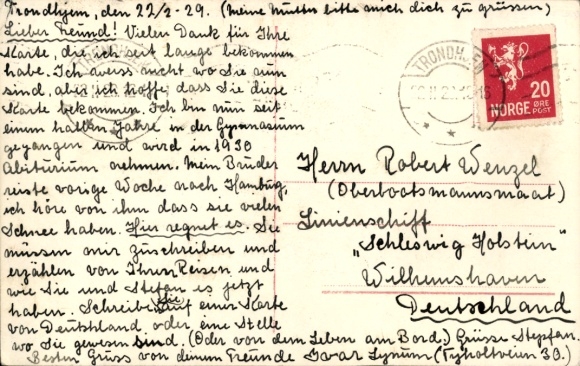 Trondhjem, den 22/2-29. (Meine Mutter bitte mich dich zu grüssen)
Lieber Freund! Vielen Dank für Ihre
Karte, die ich seit lange bekommen
habe. Ich weiss nicht wo Sie nun
sind, aber ich hoffe dass Sie diese
Karte bekommen. Ich bin nun seit
einem halben Jahre in der Gymnasium
gegangen und wird in 1930
Abiturium nehmen. Mein Bruder
reiste vorige Woche nach Hamburg,
ich höre von ihm dass sie vielen
Schnee haben. Hier regnet es. Sie
müssen mir zuschreiben und
erzählen von Ihren Reisen, und
wie Sie und Stefan es jetzt
haben. Schreiben Sie auf einer Karte
von Deutshland oder eine Stelle
wo Sie gewesen sind. (Oder von dem Leben am Bord.) Grüsse Stepfan.
Besten Gruss von deinem Freunde Ivar Lysum (Tyholtveien 30.)
TRONDHJEM
20
NORGE ØRE
POST
Herrn Robert Wenzel
(Oberbootsmannsmaat)
Linienschiff
„Schleswig Holstein"
Wilhemshaven
Deutschland